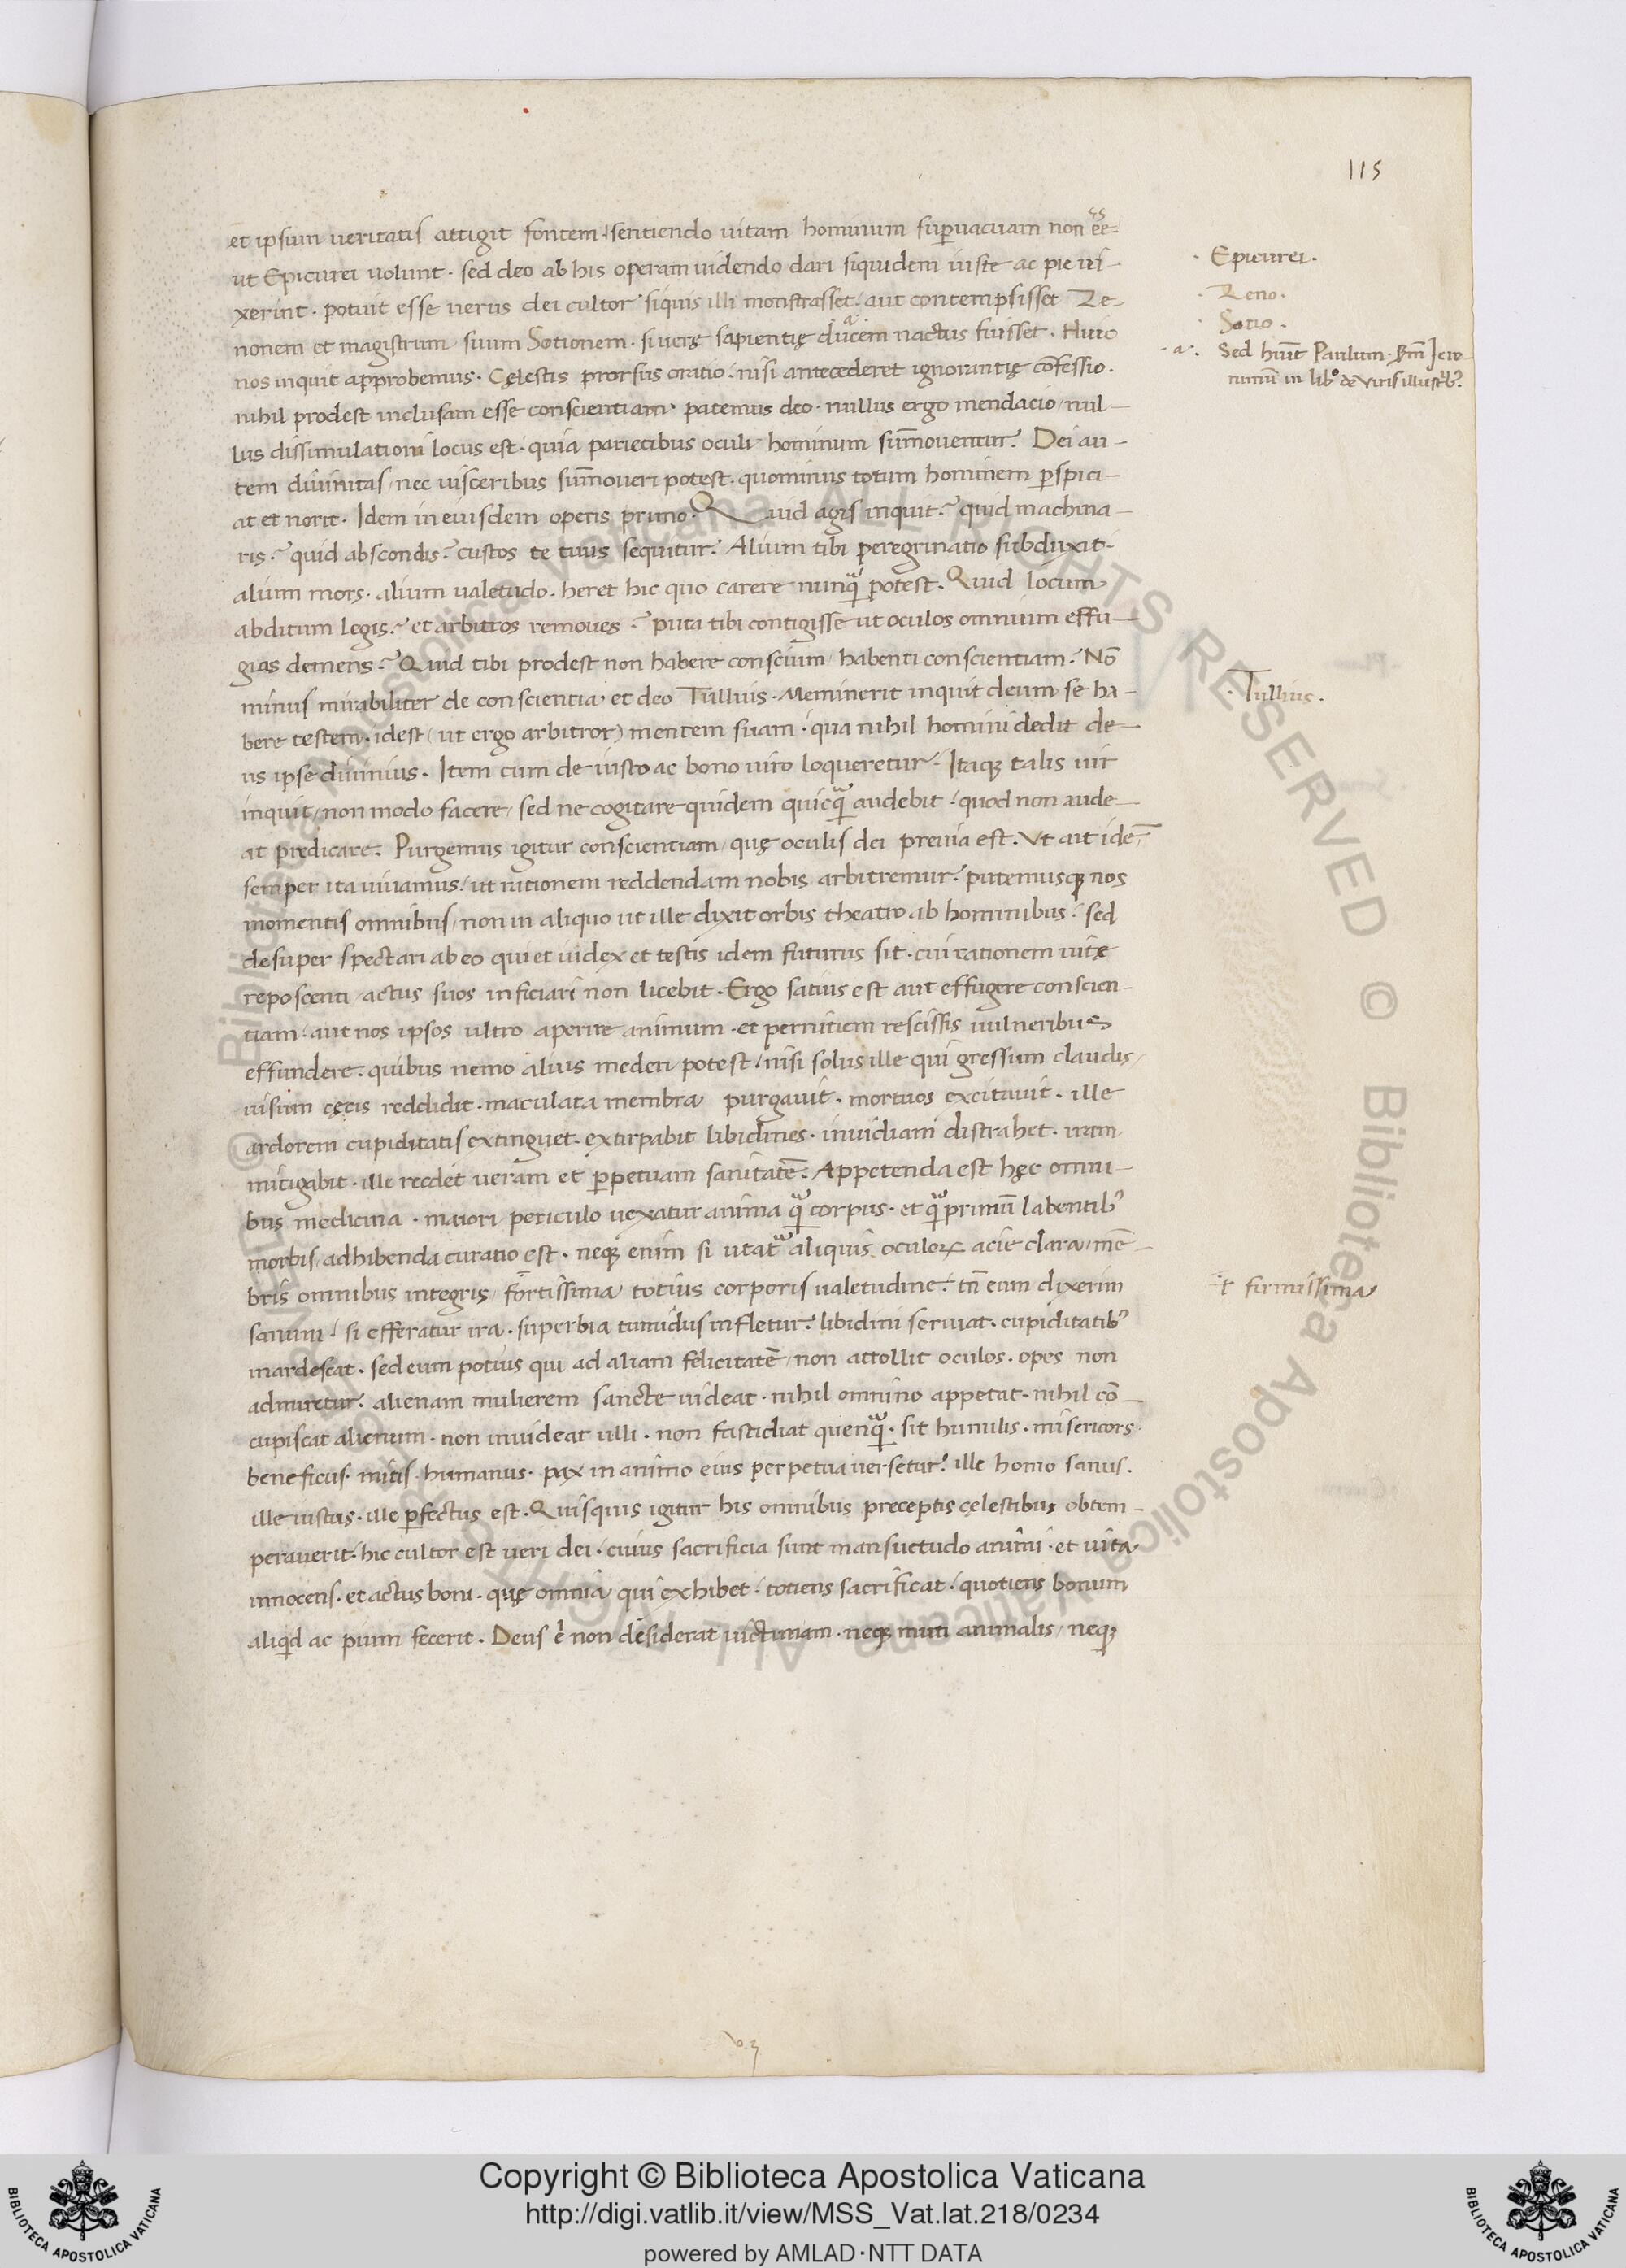 115
et ipsum ueritatis attigit fontem. sentiendo uitam hominum supuacuam non ee-
ut Epicurei uolunt. sed deo ab his operam uidendo dari siquidem iuste ac pie ui-
xerint. potuit esse uerus dei cultor siquis illi monstrasset. aut contempsisset Ze-
nonem et magistrum suum Sotionem. si uerę sapientię ducem nactus fuisset. Huic
nos inquit approbemus. Cęlestis prorsus oratio. nisi antecederet ignorantię cōfessio.
nihil prodest inclusam esse conscientiam. patemus deo. nullus ergo mendacio nul-
lus dissimulationi locus est. quia parietibus oculi hominum sum̄ouentur. Dei au-
tem diuinitas nec uisceribus sum̄oueri potest. quominus totum hominem pspici-
at et norit. Idem in eiusdem operis primo. Quid agis inquit? quid machina-
ris? quid abscondis? custos te tuus sequitur. Alium tibi peregrinatio subduxit.
alium mors. alium ualetudo. heret hic quo carere nunq̄ potest. Quid locum
abditum legis? et arbitros remoues? puta tibi contigisse ut oculos omnium effu-
gias demens? Quid tibi prodest non habere conscium habenti conscientiam? Nō
minus mirabiliter de conscientia et deo Tullius. Meminerit inquit deum se ha-
bere testem. idest (ut ergo arbitror) mentem suam. qua nihil homini dedit de-
us ipse diuinius. Item cum de iusto ac bono uiro loqueretur. Itaq; talis uir
inquit non modo facere, sed ne cogitare quidem quicq̄ audebit. quod non aude-
at predicare. Purgemus igitur conscientiam quę oculis dei preuia est. Vt ait idē
semper ita uiuamus, ut rationem reddendam nobis arbitremur. putemusq; nos
momentis omnibus, non in aliquo ut ille dixit orbis theatro ab hominibus. sed
desuper spectari ab eo qui et iudex et testis idem futurus sit. cui rationem uitę
reposcenti actus suos inficiari non licebit. Ergo satius est aut effugere conscien-
tiam. aut nos ipsos ultro aperire animum. et pernitiem rescissis uulneribus
effundere. quibus nemo alius mederi potest. nisi solus ille qui gressum claudis,
uisum cęcis reddidit. maculata membra purgauit. mortuos excitauit. ille
ardorem cupiditatis extinguet. extirpabit libidines. inuidiam distrahet. iram
mitigabit. ille reddet ueram et ppetuam sanitatē. Appetenda est hęc omni-
bus medicina. maiori periculo uexatur anima q̄ corpus. et q̄primū labentib'
morbis adhibenda curatio est. neq; enim si utat aliquis oculoꝝ acie clara, mē-
bris omnibus integris, fortissima totius corporis ualetudine. tn̄ eum dixerim
sanum. si efferatur ira. superbia tumidus infletur. libidini seruiat. cupiditatib'
mardescat. sed eum potius qui ad aliam felicitatē non attollit oculos. opes non
admiretur. alienam mulierem sancte uideat. nihil omnino appetat. nihil cō-
cupiscat alienum. non inuideat ulli. non fastidiat quenq̄. sit humilis. misericors.
beneficus. mitis. humanus. pax in animo eius perpetua uersetur. ille homo sanus.
ille iustus. ille pfectus est. Quisquis igitur his omnibus preceptis cęlestibus obtem-
perauerit. hic cultor est ueri dei. cuius sacrificia sunt mansuetudo animi. et uita
innocens. et actus boni. quę omnia qui exhibet. totiens sacrificat. quotiens bonum
aliqd ac pium fecerit. Deus .n. non desiderat uictimam. neq; muti animalis, neq;
. Epicurei.
. Zeno.
. Sotio.
. a. Sed huīt Paulum. Bm̄ Jero-
nimū in lib° de Viris illustrib'.
. Tullius.
Et firmissima
Copyright © Biblioteca Apostolica Vaticana
http://digi.vatlib.it/view/MSS_Vat.lat.218/0234
powered by AMLAD·NTT DATA
BIBLIOTECA APOSTOLICA VATICANA
BIBLIOTECA APOSTOLICA VATICANA
© Biblioteca Apostolica Vaticana ALL RIGHTS RESERVED © Biblioteca Apostolica Vaticana ALL RIGHTS RESERVED